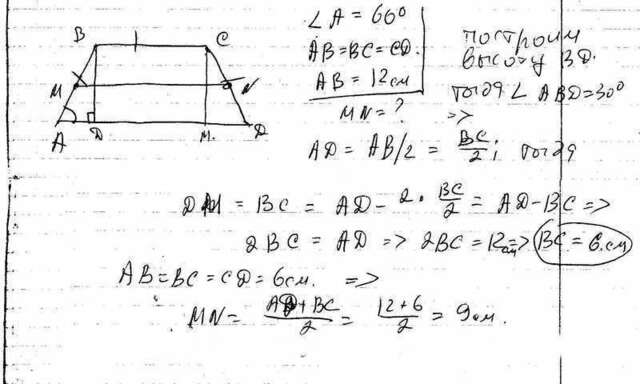 B C
M N
A D M. D
∠A = 60°
AB=BC=CD.
AB = 12см
MN = ?
построим
высоту BD.
тогда ∠ ABD=30°
=>
AD = AB/2 = BC/2; тогда
DM = BC = AD - 2 · BC/2 = AD-BC =>
2BC = AD => 2BC = 12см => BC = 6см
AB=BC=CD=6см. =>
MN = (AD+BC)/2 = (12+6)/2 = 9см.